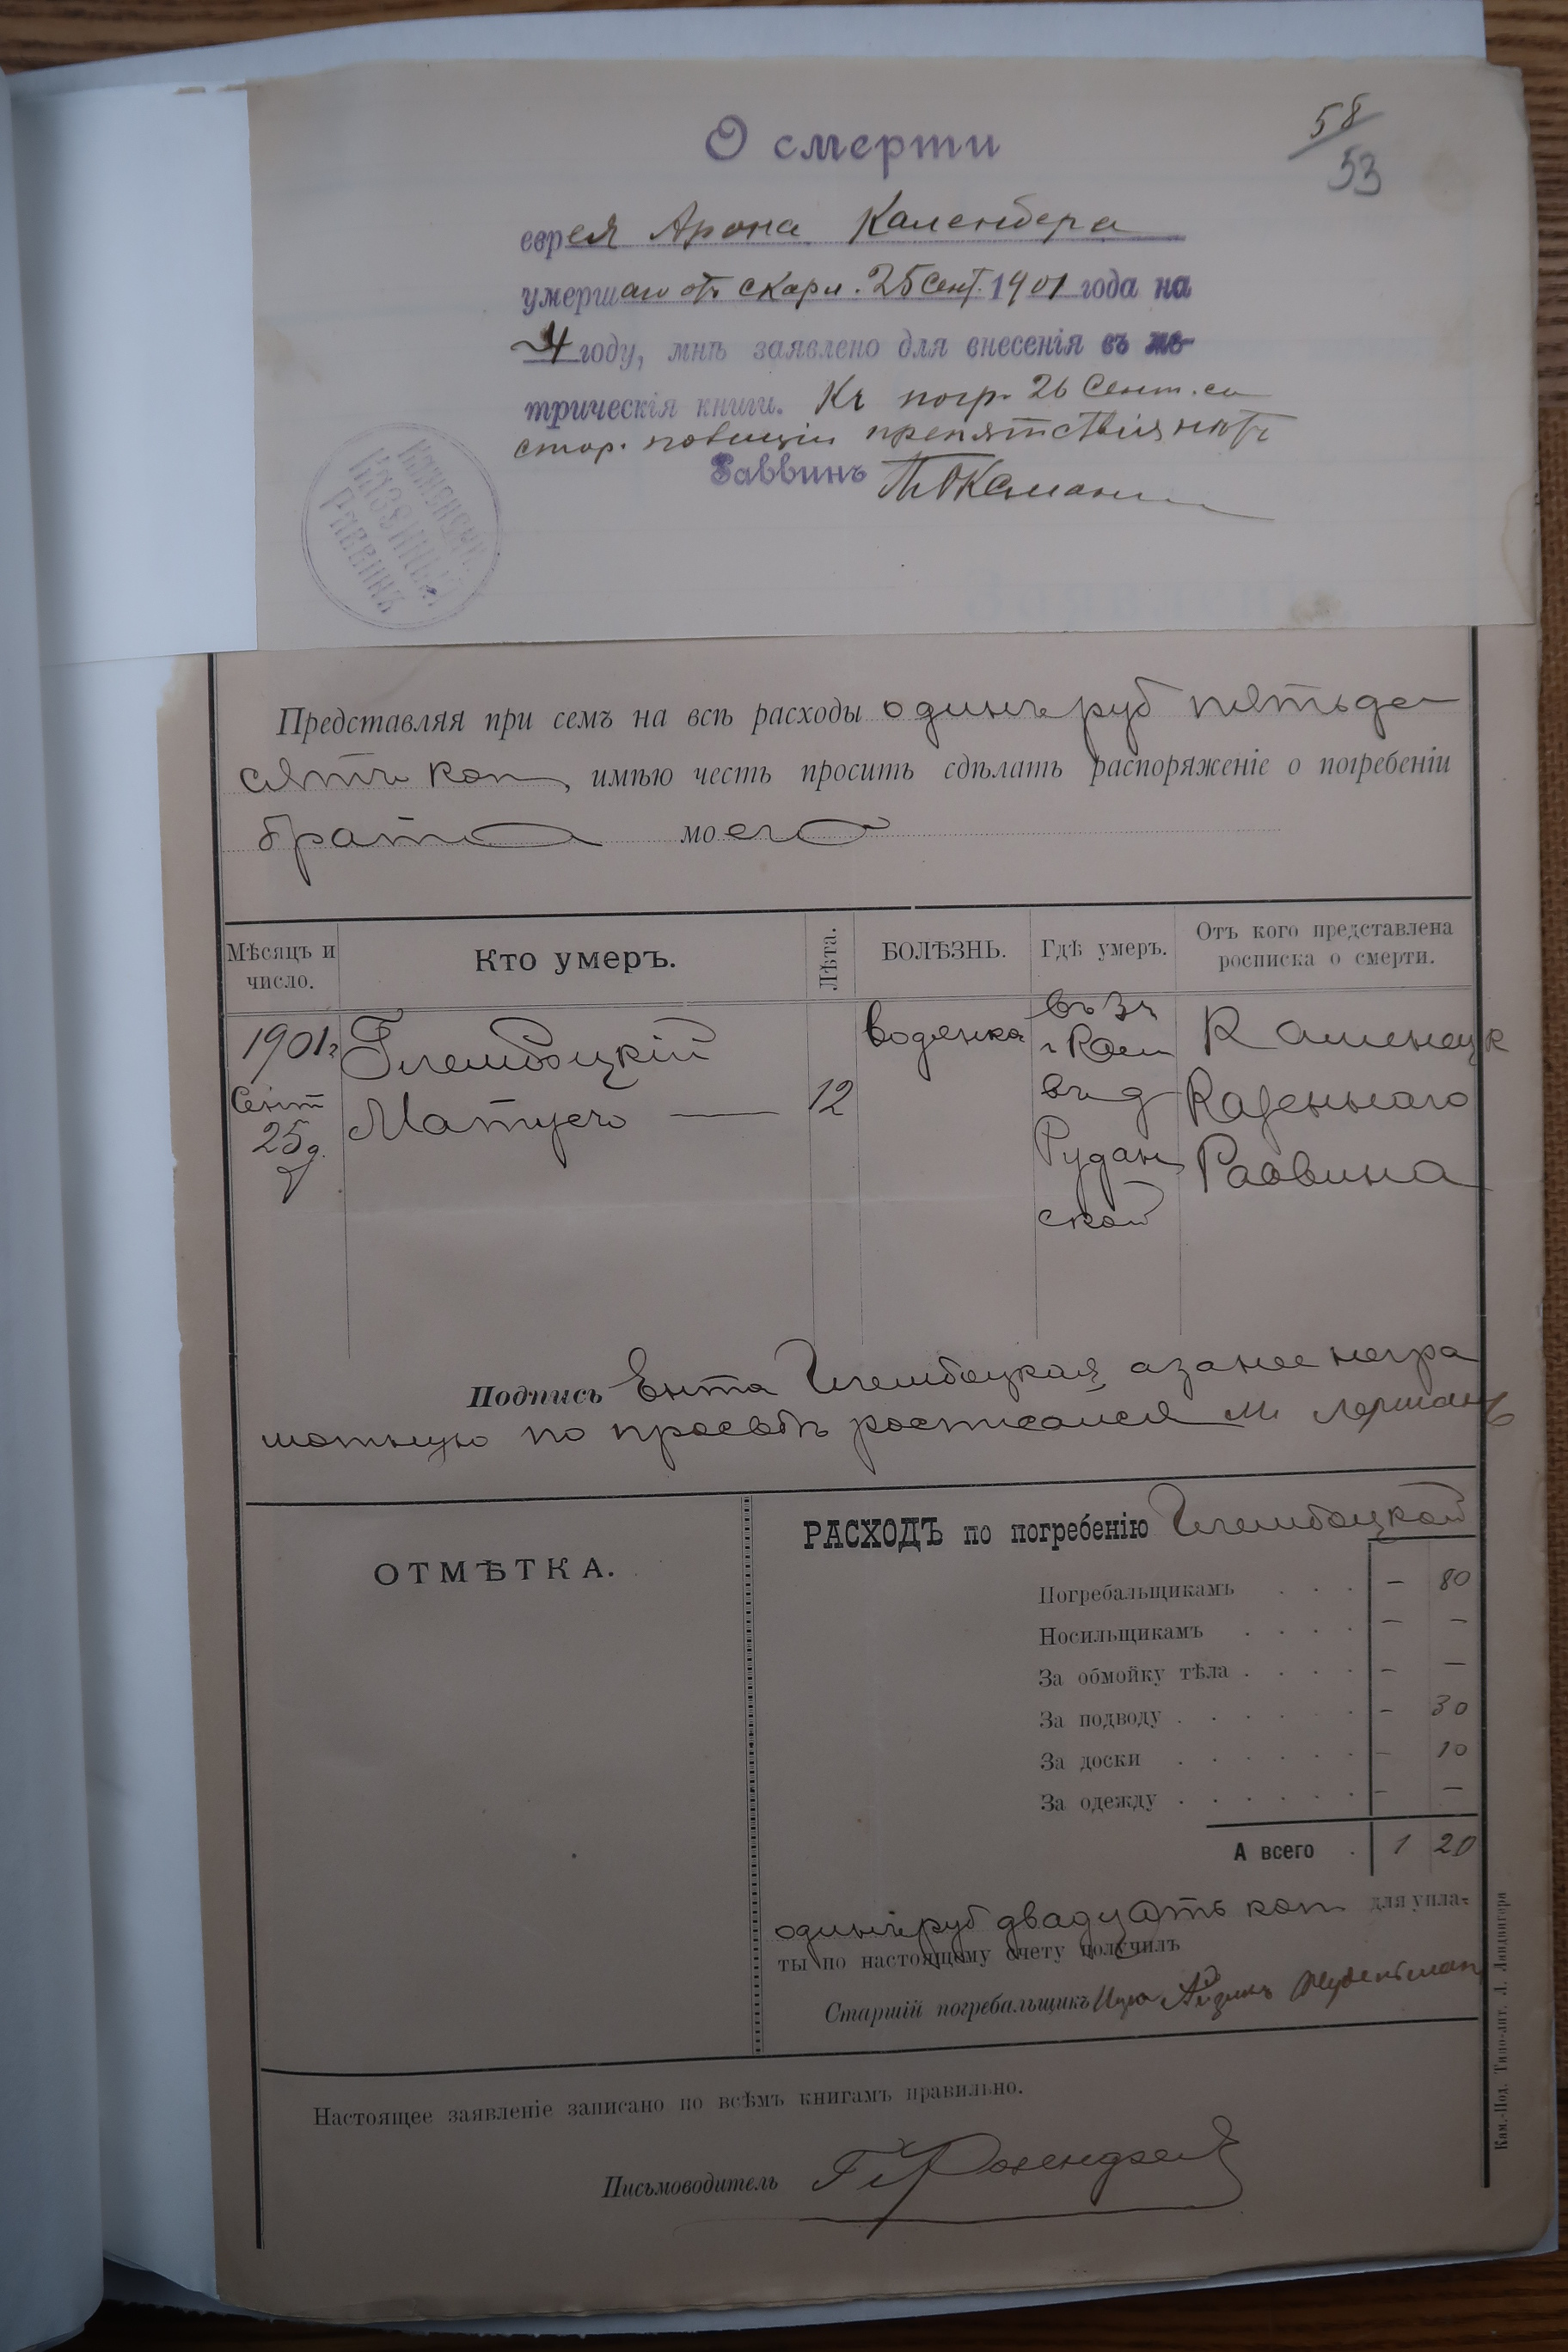 О смерти
58
53
еврея Арона Каленбера
умершаго отъ скарл. 25 Сент. 1901 года на
4 году, мнѣ заявлено для внесенія въ ме-
трическія книги. Къ погр. 26 Сент. со
стор. полиціи препятствія нѣтъ
Раввинъ
КАЗЕННЫЙ
РАВВИНЪ
Представляя при семъ на всѣ расходы одинъ руб пятьде
сятъ коп, имѣю честь просить сдѣлать распоряженіе о погребеніи
брата моего
Мѣсяцъ и число. Кто умеръ. Лѣта. БОЛѢЗНЬ. Гдѣ умеръ. Отъ кого представлена росписка о смерти.
1901г Глембоцкій водянка г Кам Каменецк
Сент Матусъ 12 въ д Казеннаго
25 д. Рудан Раввина
ской
Подпись Ента Глембоцкая, а за нее негра
мотную по просьбѣ росписался М Лерман
ОТМѢТКА.
РАСХОДЪ по погребенію Глембоцкой
Погребальщикамъ . . . — 80
Носильщикамъ . . . . — —
За обмойку тѣла . . . . — —
За подводу . . . . . . — 30
За доски . . . . . . — 10
За одежду . . . . . . — —
А всего . 1 20
одинъ руб двадцать коп для упла-
ты по настоящему счету получилъ
Старшій погребальщикъ
Настоящее заявленіе записано по всѣмъ книгамъ правильно.
Письмоводитель
Кам.-Под. Типо-лит. Л. Ландвигера